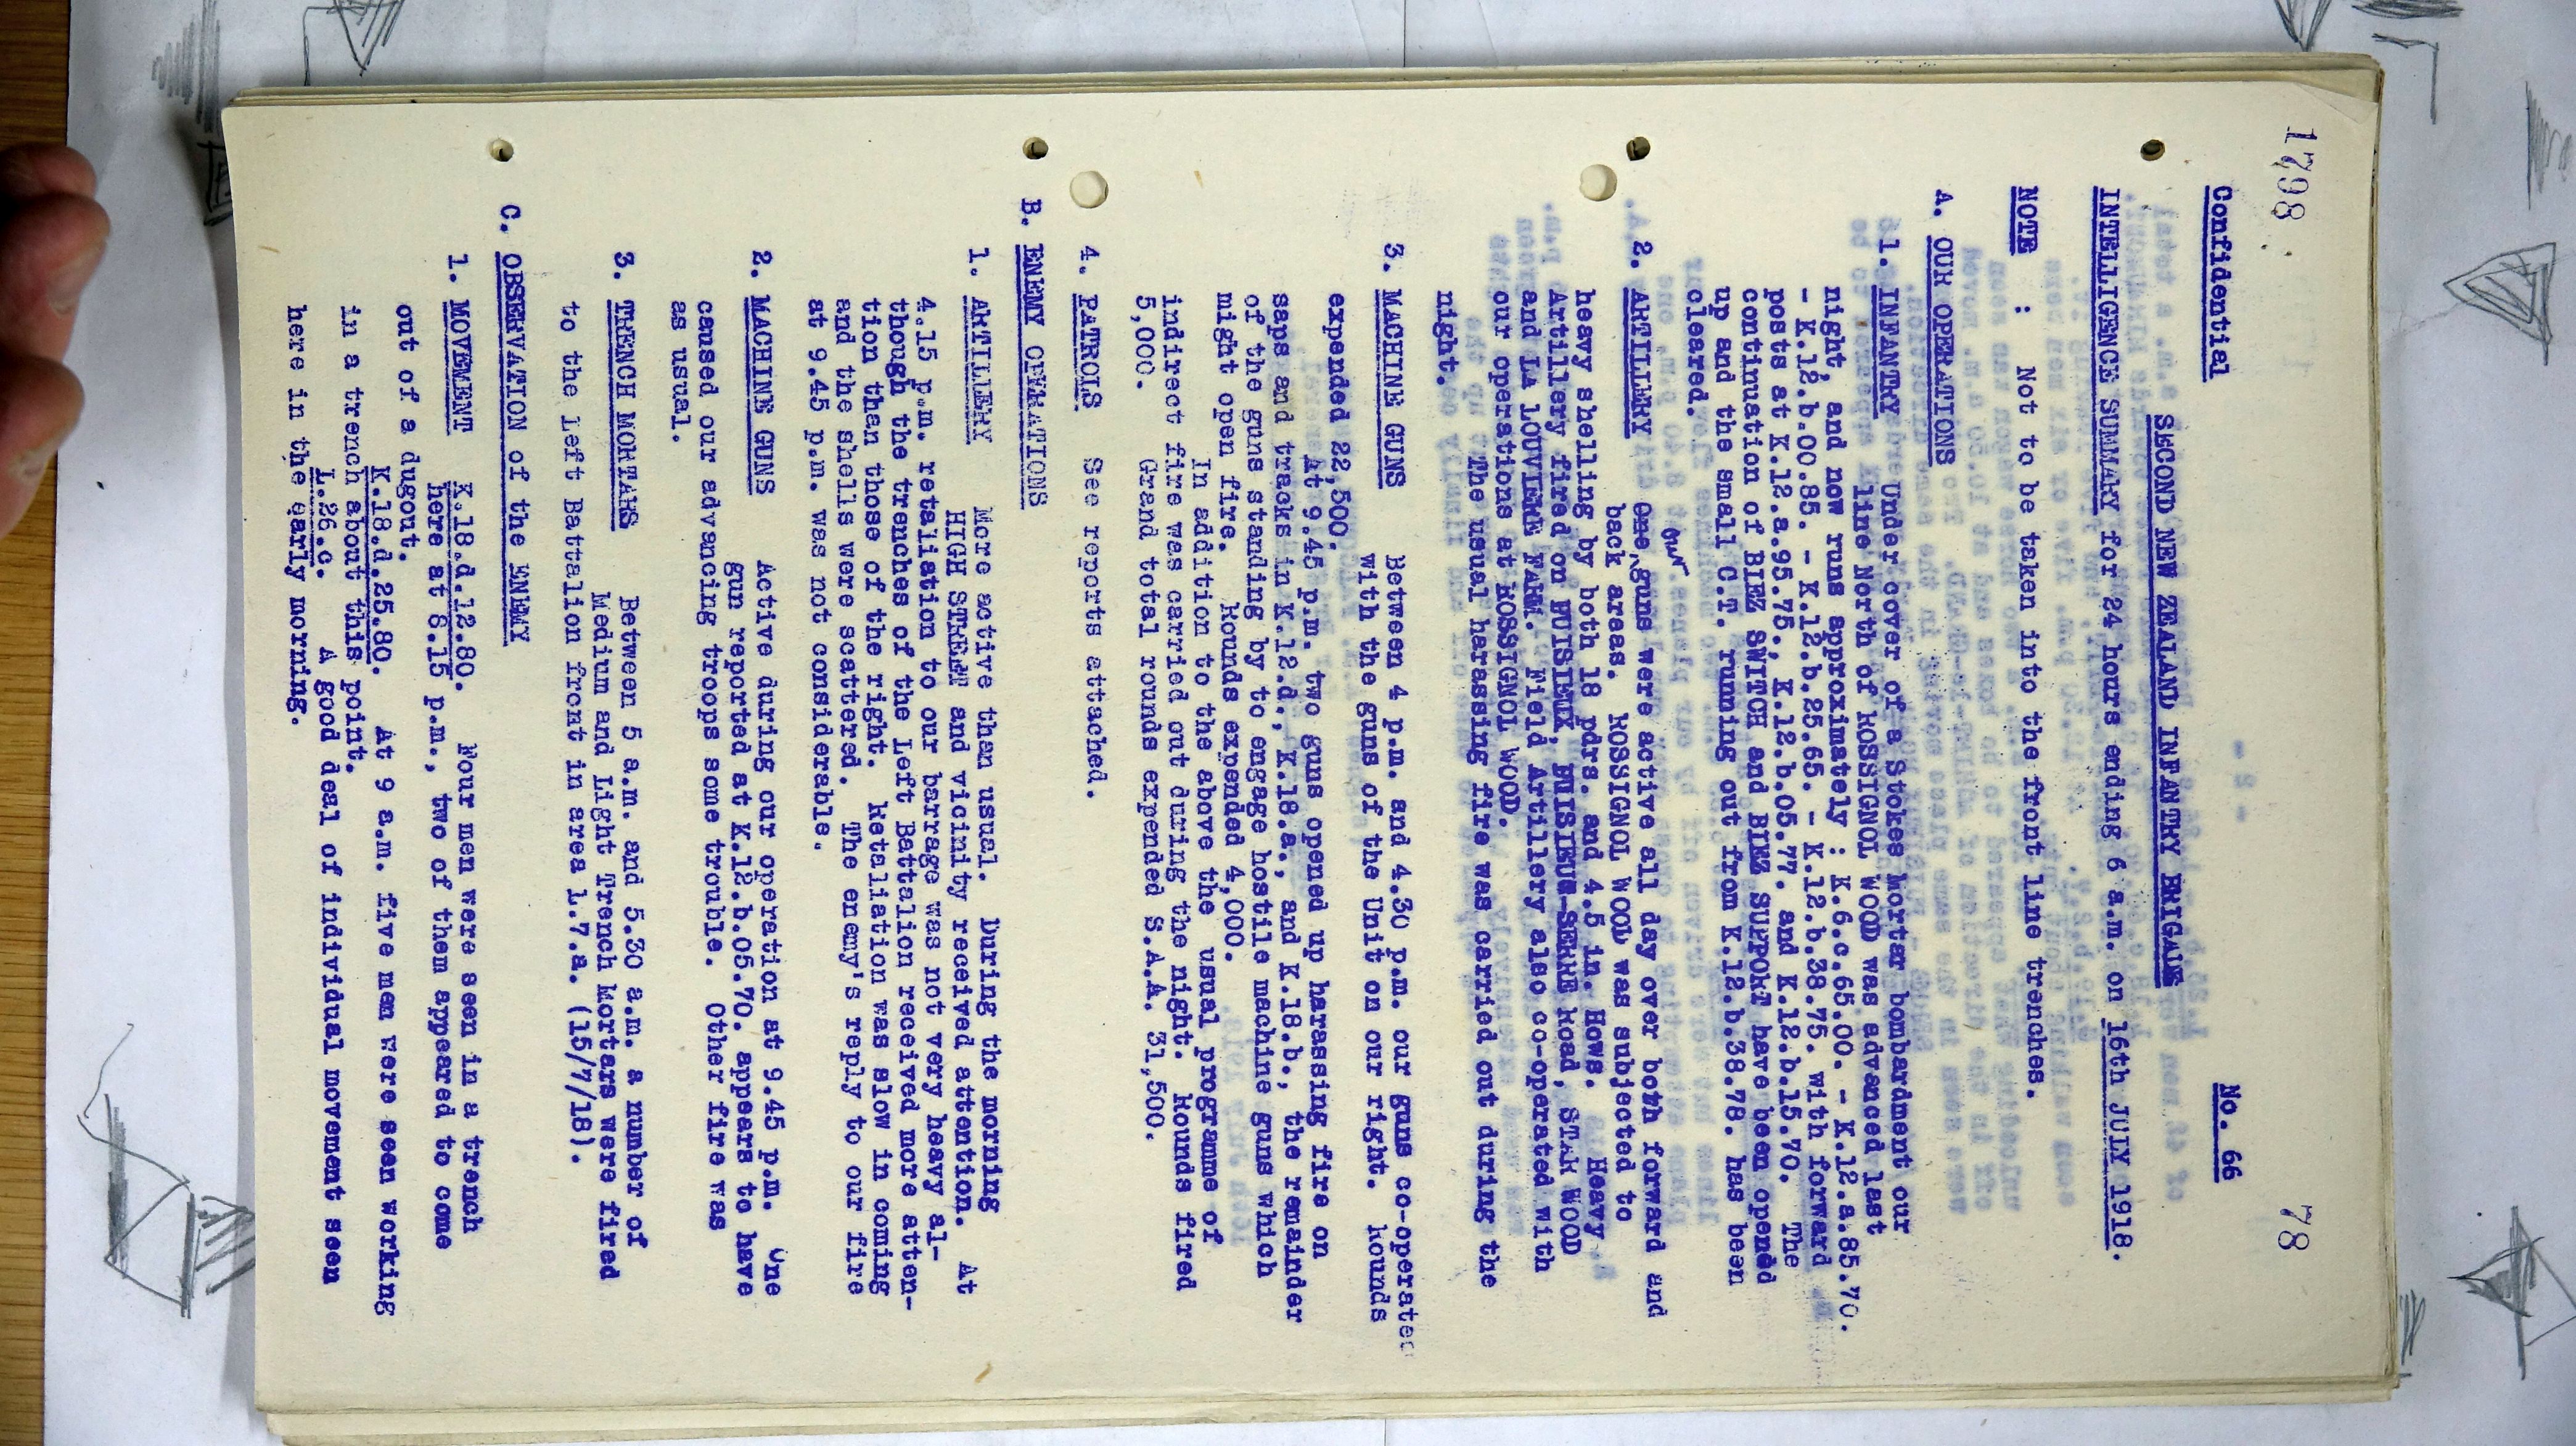 1798
78
Confidential
No. 66
SECOND NEW ZEALAND INFANTRY BRIGADE
INTELLIGENCE SUMMARY for 24 hours ending 6 a.m. on 16th JULY 1918.
NOTE : Not to be taken into the front line trenches.
A. OUR OPERATIONS
1. INFANTRY Under cover of a Stokes Mortar bombardment our
line North of ROSSIGNOL WOOD was advanced last
night, and now runs approximately : K.6.c.65.00. - K.12.a.85.70.
- K.12.b.00.85. - K.12.b.25.65. - K.12.b.38.75. with forward
posts at K.12.a.95.75., K.12.b.05.77. and K.12.b.15.70. The
continuation of BIEZ SWITCH and BIEZ SUPPORT have been opened
up and the small C.T. running out from K.12.b.38.78. has been
cleared.
2. ARTILLERY One our guns were active all day over both forward and
back areas. ROSSIGNOL WOOD was subjected to
heavy shelling by both 18 pdrs. and 4.5 in. Hows. Heavy
Artillery fired on PUISIEUX, PUISIEUX-SERRE Road, STAR WOOD
and LA LOUVIERE FARM. Field Artillery also co-operated with
our operations at ROSSIGNOL WOOD.
The usual harassing fire was carried out during the
night.
3. MACHINE GUNS Between 4 p.m. and 4.30 p.m. our guns co-operated
with the guns of the Unit on our right. Rounds
expended 22,500.
At 9.45 p.m. two guns opened up harassing fire on
saps and tracks in K.12.d., K.18.a., and K.18.b., the remainder
of the guns standing by to engage hostile machine guns which
might open fire. Rounds expended 4,000.
In addition to the above the usual programme of
indirect fire was carried out during the night. Rounds fired
5,000. Grand total rounds expended S.A.A. 31,500.
4. PATROLS See reports attached.
B. ENEMY OPERATIONS
1. ARTILLERY More active than usual. During the morning
HIGH STREET and vicinity received attention. At
4.15 p.m. retaliation to our barrage was not very heavy al-
though the trenches of the Left Battalion received more atten-
tion than those of the right. Retaliation was slow in coming
and the shells were scattered. The enemy's reply to our fire
at 9.45 p.m. was not considerable.
2. MACHINE GUNS Active during our operation at 9.45 p.m. One
gun reported at K.12.b.05.70. appears to have
caused our advancing troops some trouble. Other fire was
as usual.
3. TRENCH MORTARS Between 5 a.m. and 5.30 a.m. a number of
Medium and Light Trench Mortars were fired
to the Left Battalion front in area L.7.a. (15/7/18).
C. OBSERVATION of the ENEMY
1. MOVEMENT K.18.d.12.80. Four men were seen in a trench
here at 8.15 p.m., two of them appeared to come
out of a dugout.
K.18.d.25.80. At 9 a.m. five men were seen working
in a trench about this point.
L.26.c. A good deal of individual movement seen
here in the early morning.